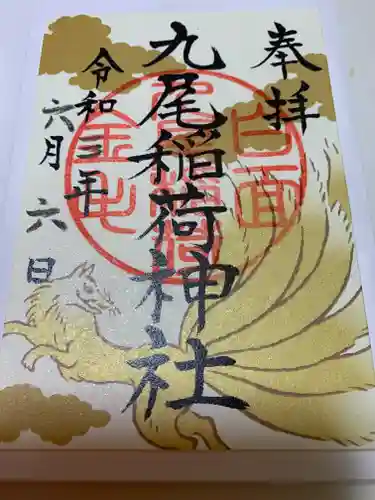 奉拝
九尾稲荷神社
令和三年
六月六日
白面
金毛